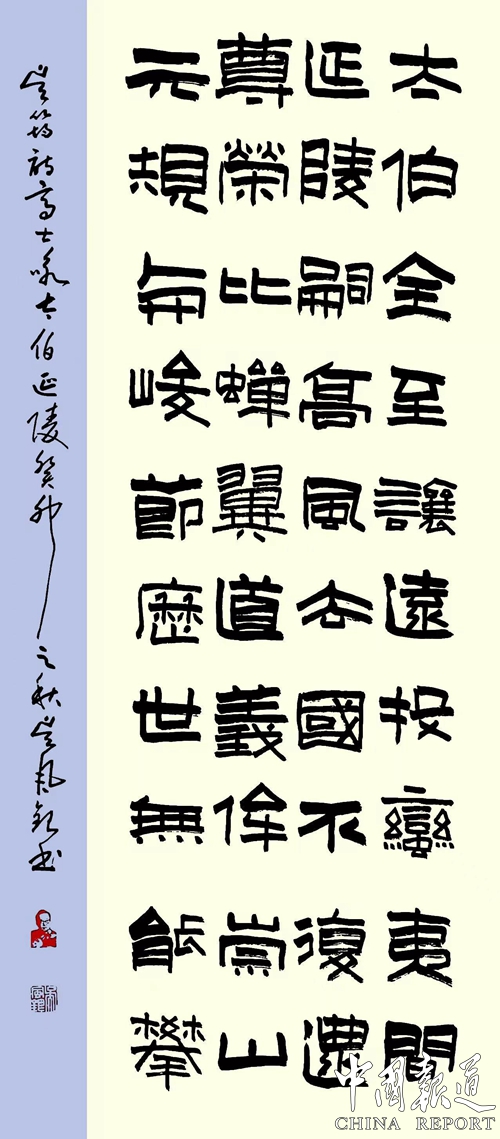 太伯全至讓遠投蠻夷間
延陵嗣高風去國不復還
尊榮比蟬翼道義侔崇山
元規与峻節歷世無能攀
吴筠詩高士詠太伯延陵癸卯之秋吴風書
中國報道
CHINA REPORT